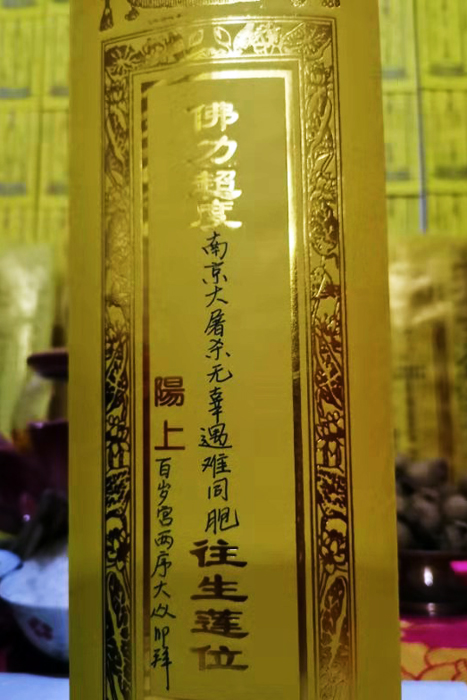 佛力超度南京大屠杀无辜遇难同胞往生莲位
陽上百岁宫两序大众叩拜